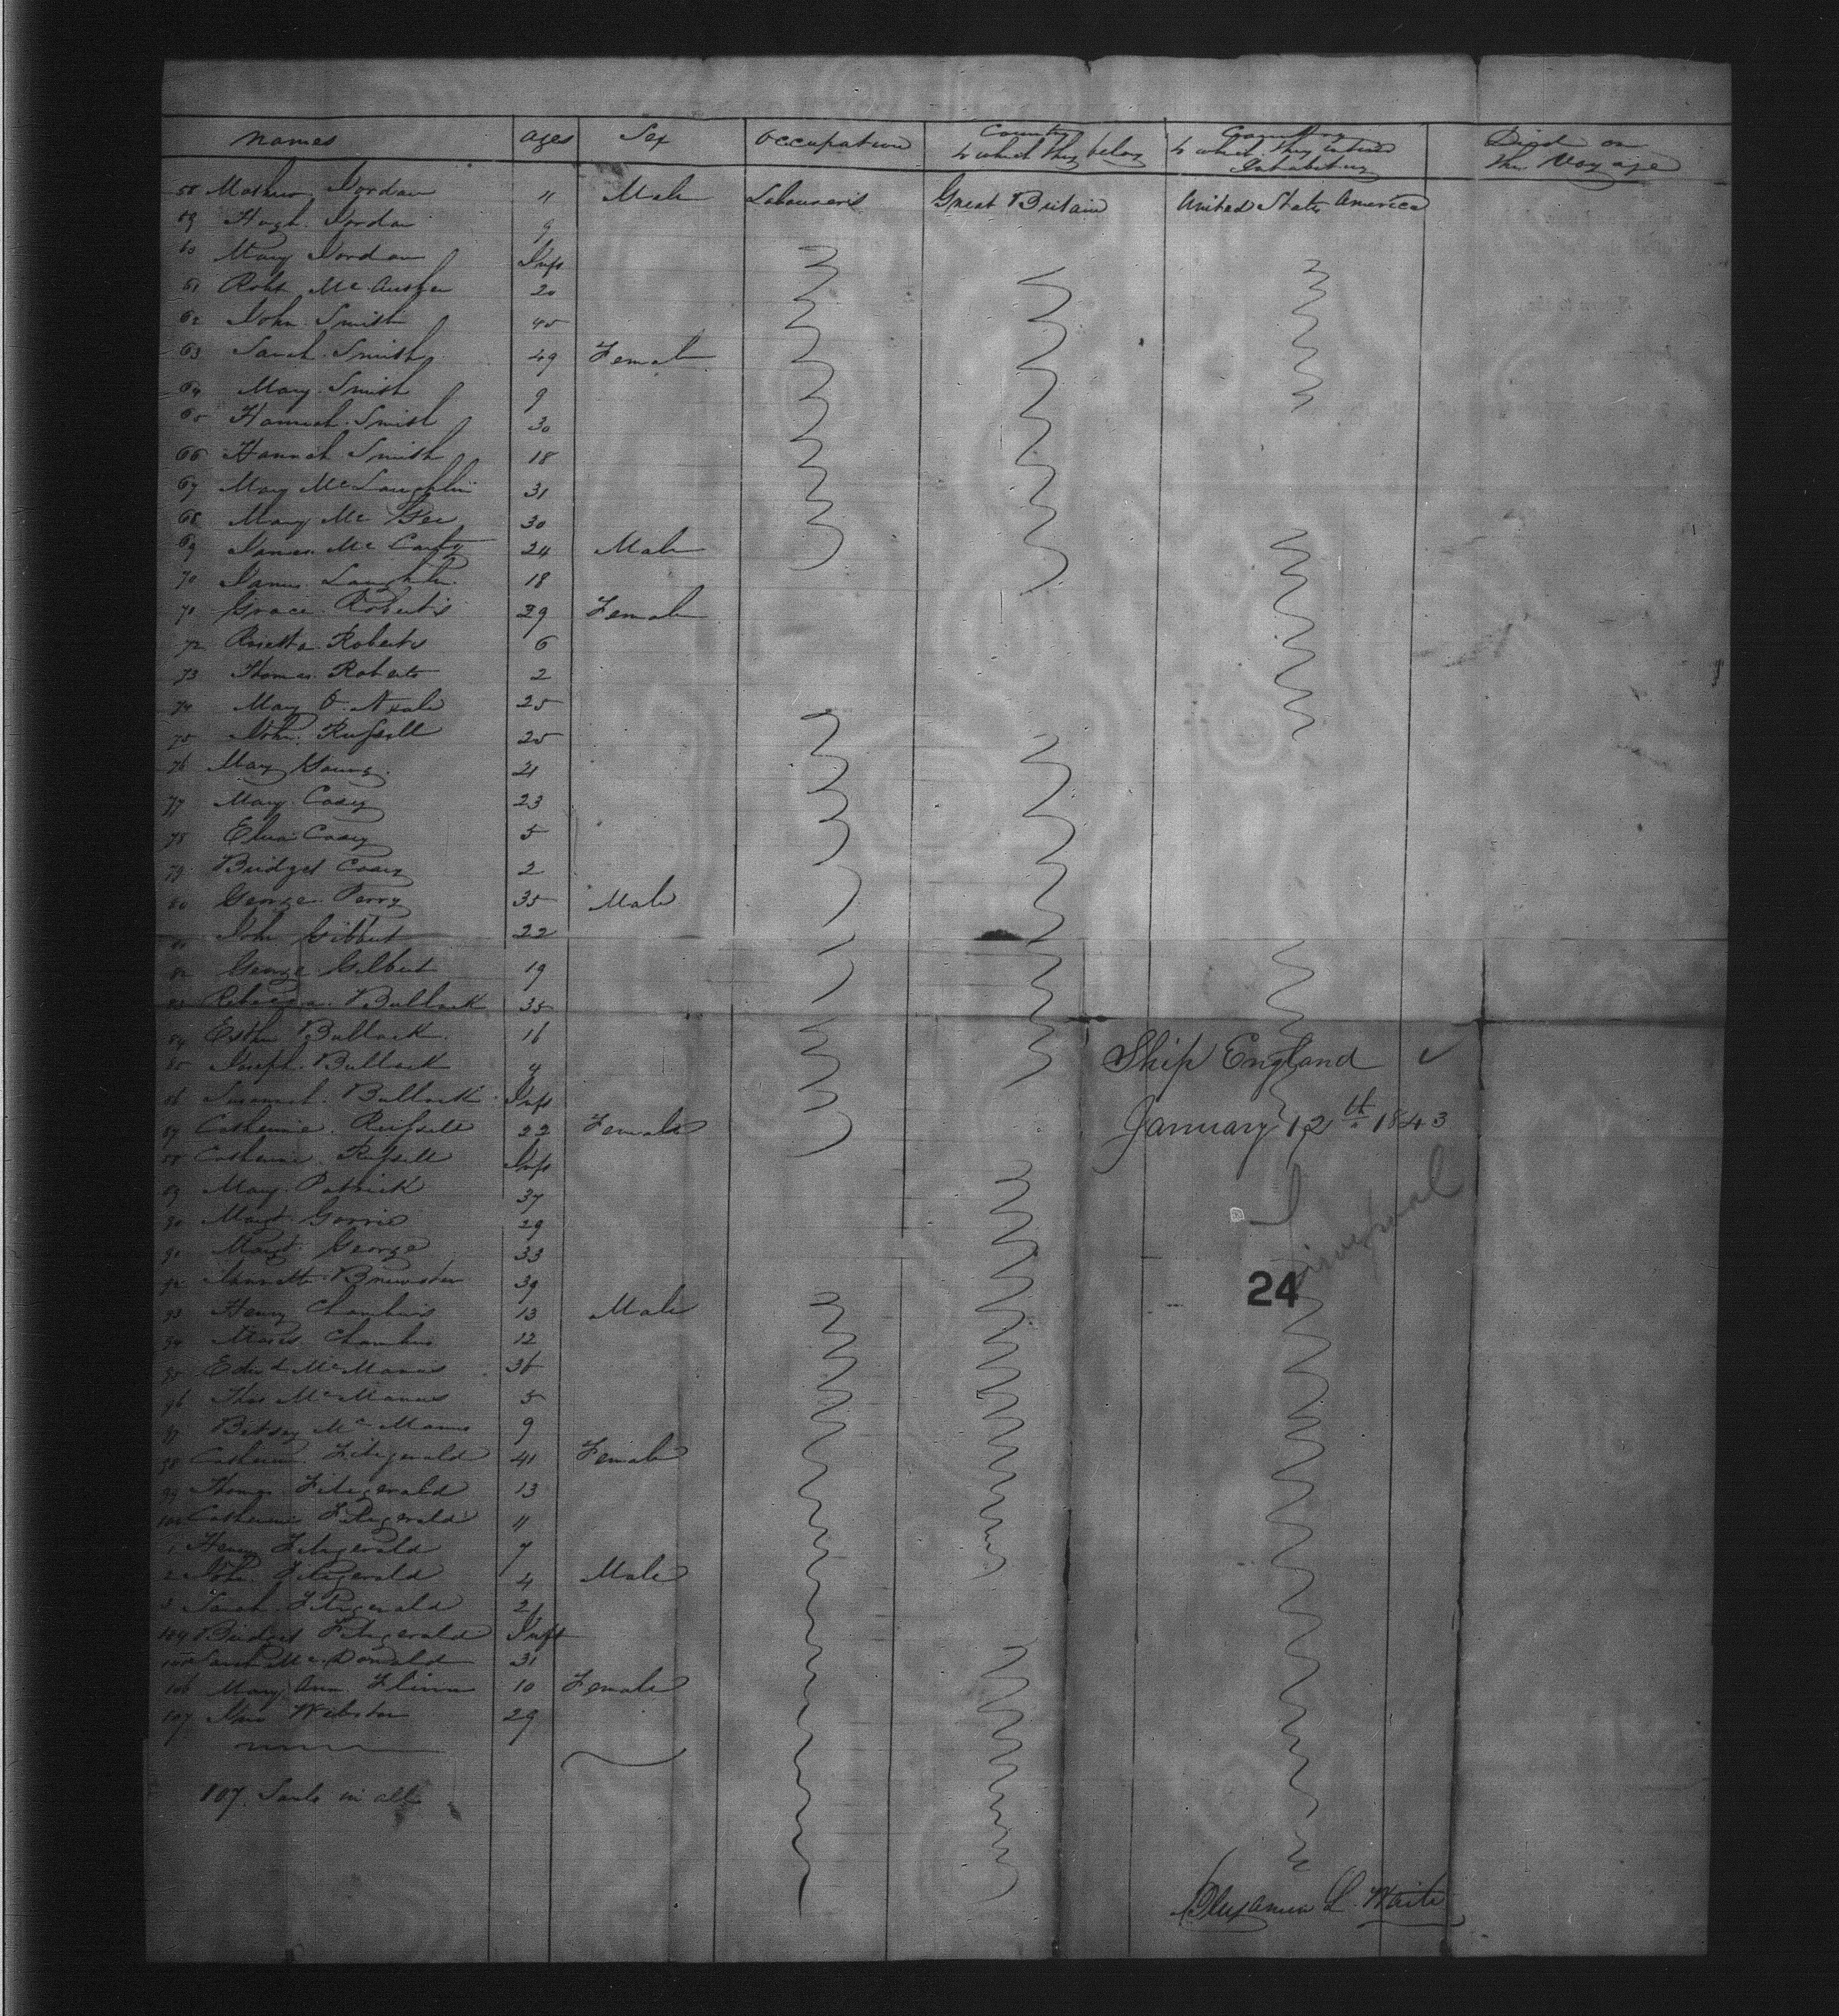 Names Ages Sex Occupation Country to which they belong Country to which they intend Inhabiting Died on the Voyage
58 Mathew Jordan 11 Male Labourers Great Britain United States America
59 Hugh Jordan 9
60 Mary Jordan Inft
61 Robt Mc 20
62 John Smith 45
63 Sarah Smith 49 Female
64 Mary Smith 9
65 Hannah Smith 30
66 Hannah Smith 18
67 Mary McLaughlin 31
68 Mary Mc Gee 30
69 James Mc Carty 24 Male
70 James Laughlin 18
71 Grace Roberts 29 Female
72 Rosetta Roberts 6
73 Thomas Roberts 2
74 Mary O. Neale 25
75 John Russell 25
76 Mary Young 21
77 Mary Casey 23
78 Casey 5
79 Bridget Casey 2
80 George Perry 35 Male
81 John Gilbert 22
82 George Gilbert 19
83 Rebecca Bullock 35
84 Esther Bullock 16
85 Joseph Bullock 9
Ship England
86 Susannah Bullock Inft
87 Catherine Russell 22 Female
January 12th 1843
88 Catherine Russell Inft
89 Mary Patrick 37
Liverpool
90 Margt Gorrie 29
91 Margt George 33
92 Jannette Brewster 39
24
93 Henry Chambers 13 Male
94 Moses Chambers 12
95 Edwd McManus 36
96 Thos McManus 5
97 Betsey McManus 9
98 Catherine Fitzgerald 41 Female
99 Thomas Fitzgerald 13
100 Catherine Fitzgerald 11
1 Henry Fitzgerald 7
2 John Fitzgerald 4 Male
3 Sarah Fitzgerald 2
104 Bridget Fitzgerald Inft
105 Sarah McDonald 31
106 Mary Ann Flinn 10 Female
107 Webster 29
107 Souls in all
L. Waite